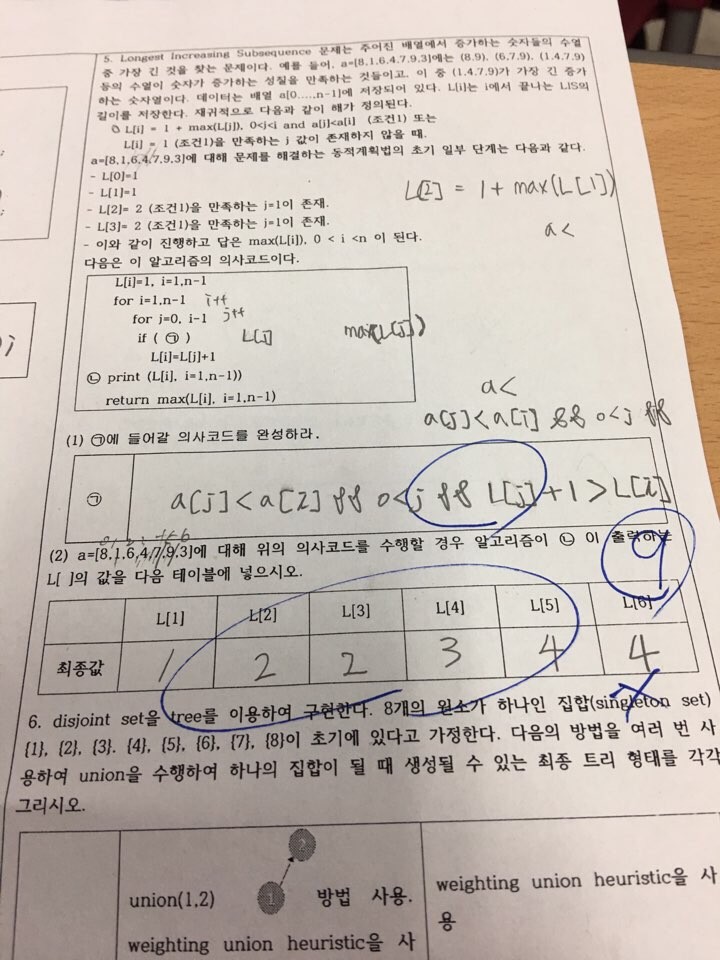 5. Longest Increasing Subsequence 문제는 주어진 배열에서 증가하는 숫자들의 수열
중 가장 긴 것을 찾는 문제이다. 예를 들어, a=[8,1,6,4,7,9,3]에는 (8,9), (6,7,9), (1,4,7,9)
등의 수열이 숫자가 증가하는 성질을 만족하는 것들이고, 이 중 (1,4,7,9)가 가장 긴 증가
하는 숫자열이다. 데이터는 배열 a[0....,n-1]에 저장되어 있다. L[i]는 i에서 끝나는 LIS의
길이를 저장한다. 재귀적으로 다음과 같이 해가 정의된다.
L[i] = 1 + max(L[j]), 0<j<i and a[j]<a[i] (조건1) 또는
L[i] = 1 (조건1)을 만족하는 j 값이 존재하지 않을 때.
a=[8,1,6,4,7,9,3]에 대해 문제를 해결하는 동적계획법의 초기 일부 단계는 다음과 같다.
- L[0]=1
- L[1]=1
L[2] = 1 + max(L[1])
- L[2]= 2 (조건1)을 만족하는 j=1이 존재.
- L[3]= 2 (조건1)을 만족하는 j=1이 존재.
a<
- 이와 같이 진행하고 답은 max(L[i]), 0 < i <n 이 된다.
다음은 이 알고리즘의 의사코드이다.
L[i]=1, i=1,n-1
for i=1,n-1 i++
for j=0, i-1 j++
if ( ㉠ ) L[j] max(L[j])
L[i]=L[j]+1
㉡ print (L[i], i=1,n-1))
return max(L[i], i=1,n-1)
a<
a[j]<a[i] && 0<j &&
(1) ㉠에 들어갈 의사코드를 완성하라.
㉠ a[j]<a[i] && 0<j && L[j]+1>L[i]
(2) a=[8,1,6,4,7,9,3]에 대해 위의 의사코드를 수행할 경우 알고리즘이 ㉡ 이 출력하는
L[ ]의 값을 다음 테이블에 넣으시오.
9
L[1] L[2] L[3] L[4] L[5] L[6]
최종값 1 2 2 3 4 4
6. disjoint set을 tree를 이용하여 구현한다. 8개의 원소가 하나인 집합(singleton set)
{1}, {2}, {3}. {4}, {5}, {6}, {7}, {8}이 초기에 있다고 가정한다. 다음의 방법을 여러 번 사
용하여 union을 수행하여 하나의 집합이 될 때 생성될 수 있는 최종 트리 형태를 각각
그리시오.
2
union(1,2) 1 방법 사용.
weighting union heuristic을 사
weighting union heuristic을 사
용